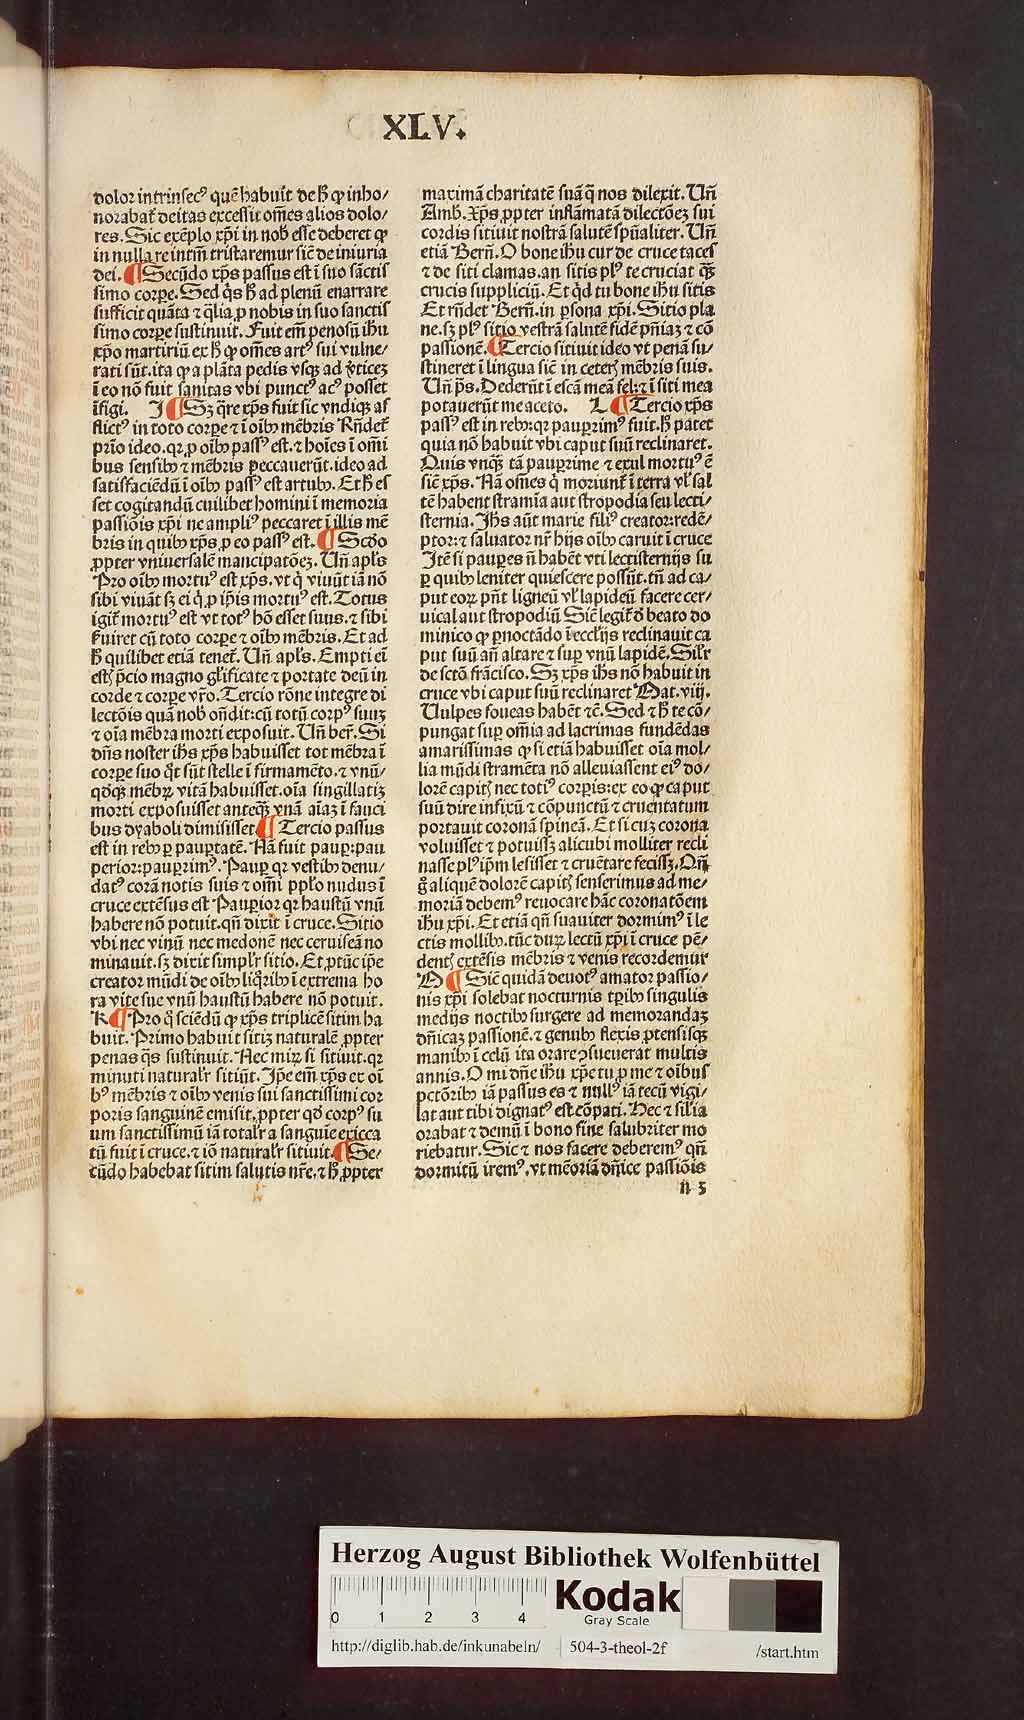 XLV.
dolor intrinsecꝰ quē habuit de hͦ ꝙ inho⸗
norabat̄ deitas excessit om̄es alios dolo⸗
res. Sic exēplo xp̄i in nob̄ esse deberet ꝙ
in nulla re intm̄ tristaremur siē de iniuria
dei. ¶ Secūdo xp̄s passus est ī suo sācti
simo corꝑe. Sed q̇s hͦ ad plenū enarrare
sufficit quāta ⁊ q̄lia ꝓ nobis in suo sanctis
simo corꝑe sustinuit. Fuit em̄ penosū ihū
xp̄o martiriū ex hͦ ꝙ om̄es artꝰ sui vulne⸗
rati sūt. ita ꝙ a plāta pedis vsqꝫ ad v̄ticeꝫ
ī eo nō fuit sanitas vbi punctꝰ acꝰ posset
īfigi. J ¶ Sꝫ q̄re xp̄s fuit sic vndiqꝫ af
flictꝰ in toto corꝑe ⁊ ī oībꝰ mēbris Rn̄det̄
prīo ideo. qꝛ ꝓ oībꝰ passꝰ est. ⁊ hoīes ī om̄i
bus sensibꝰ ⁊ mēbris peccauerūt. ideo ad
satisfaciēdū ī oībꝰ passꝰ est artubꝰ. Et hͦ es
set cogitandū cuilibet homini ī memoria
passiōis xp̄i ne ampliꝰ peccaret ī illis mē
bris in quibꝰ xp̄s ꝓ eo passꝰ est. ¶ Scd̄o
ꝓpter vniuersalē mancipatōeꝫ. Vn̄ apl̄s
Pro oībꝰ mortuꝰ est xp̄s. vt q̇ viuūt iā nō
sibi viuāt sꝫ ei q̇ ꝓ ip̄is mortuꝰ est. Totus
igit̄ mortuꝰ est vt totꝰ hō esset suus. ⁊ sibi
ẜuiret cū toto corꝑe ⁊ oībꝰ mēbris. Et ad
hͦ quilibet etiā tenet̄. Vn̄ apl̄s. Empti eī
estꝭ p̄cio magno gl̄ificate ⁊ portate deū in
corde ⁊ corꝑe vr̄o. Tercio rōne integre di
lectōis quā nob̄ on̄dit: cū totū corpꝰ suuꝫ
⁊ oīa mēbra morti exposuit. Vn̄ ber̄. Si
dn̄s noster ih̄s xp̄s habuisset tot mēbra ī
corꝑe suo q̊t sūt stelle ī firmamēto. ⁊ vnū⸗
qd̊qꝫ mēbꝝ vitā habuisset. oīa singillatiꝫ
morti exposuisset anteqꝫ̄ vnā aīaꝫ ī fauci
bus dyaboli dimisisset ¶ Tercio passus
est in rebꝰ ꝑ pauꝑtatē. Nā fuit pauꝑ: pau
perior: pauꝑimꝰ. Pauꝑ qꝛ vestibꝰ denu⸗
datꝰ corā notis suis ⁊ om̄i pplo̅ nudus ī
cruce extēsus est Pauꝑior qꝛ haustū vnū
habere nō potuit. qn̄ dixit ī cruce. Sitio
vbi nec vinū nec medonē nec ceruiseā no
minauit. sꝫ dixit simplr̄ sitio. Et ꝓtūc ip̄e
creator mūdi de oībꝰ liq̊ribꝰ ī extrema ho
ra vite sue vnū haustū habere nō potuit.
K ¶ Pro q̊ sciēdū ꝙ xp̄s triplicē sitim ha
buit. Primo habuit sitiꝫ naturalē ꝓpter
penas q̄s sustinuit. Nec miꝝ si sitiuit. qꝛ
minuti naturalr̄ sitiūt. Ip̄e em̄ xp̄s ex oī
bꝰ mēbris ⁊ oībꝰ venis sui sanctissimi cor
poris sanguinē emisit ꝓpter qd̊ corpꝰ su
um sanctissimū iā totalr̄ a sanguīe exicca
tū fuit ī cruce. ⁊ iō naturalr̄ sitiuit. ¶ Se⸗
cūdo habebat sitim salutis nr̄e. ⁊ hͦ ꝓpter
maximā charitatē suā q̄ nos dilexit. Vn̄
Amb. Xp̄s ꝓpter inflāmatā dilectōeꝫ sui
cordis sitiuit nostrā salutē spūaliter. Vn̄
etiā Bern̄. O bone ihū cur de cruce taces
⁊ de siti clamas. an sitis plꝰ te cruciat qꝫ̄
crucis suppliciū. Et q̇d tu bone ihū sitis
Et rn̄det Bern̄. in ꝑsona xp̄i. Sitio pla
ne. sꝫ plꝰ sitio vestrā salutē fidē pn̄iaꝫ ⁊ cō
passionē. ¶ Tercio sitiuit ideo vt penā su⸗
stineret ī lingua siē in ceterꝭ mēbris suis.
Vn̄ p̄s. Dederūt ī escā meā fel: ⁊ ī siti mea
potauerūt me aceto. L ¶ Tercio xp̄s
passꝰ est in rebꝰ: qꝛ pauꝑimꝰ fuit. hͦ patet
quia nō habuit vbi caput suū reclinaret.
Quis vnqꝫ̄ tā pauꝑime ⁊ exul mortuꝰ ē
siē xp̄s. Nā om̄es q̇ moriunt̄ ī terra vl̄ sal
tē habent stramīa aut stropodia seu lecti⸗
sternia. Jh̄s aūt marie filiꝰ creator: redē⸗
ptor: ⁊ saluator nr̄ hijs oībꝰ caruit ī cruce
Jtē si pauꝑes n̄ habēt vti lectisternijs su
ꝑ quibꝰ leniter quiescere possūt. tn̄ ad ca⸗
put eoꝝ pn̄t ligneū vl̄ lapideū facere cer⸗
uical aut stropodiū Siē legit̄ d̊ beato do
minico ꝙ ꝑnoctādo ī eccl̄ijs reclinauit ca
put suū an̄ altare ⁊ suꝑ vnū lapidē. Silr̄
de sctō frācisco. Sꝫ xp̄s ih̄s nō habuit in
cruce vbi caput suū reclinaret Mat. viij.
Vulpes foueas habēt ⁊c̄. Sed ⁊ hͦ te cō⸗
pungat suꝑ om̄ia ad lacrimas fundēdas
amarissimas ꝙ si etiā habuisset oīa mol⸗
lia mūdi stramēta nō alleuiassent eiꝰ do⸗
lorē capitꝭ nec totiꝰ corꝑis: ex eo ꝙ caput
suū dire infixū ⁊ cōpunctū ⁊ cruentatum
portauit coronā spineā. Et si cuꝫ corona
voluisset ⁊ potuissꝫ alicubi molliter recli
nasse plꝰ ip̄m lesisset ⁊ cruētare fecissꝫ. Qn̄
g̊ aliquē dolorē capitꝭ senserimus ad me⸗
moriā debemꝰ reuocare hāc coronatōem
ihū xp̄i. Et etiā qn̄ suauiter dormimꝰ ī le
ctis mollibꝰ. tūc duꝝ lectū xp̄i ī cruce pē⸗
dentꝭ extēsis mēbris ⁊ venis recordemur
M ¶ Siē quidā deuotꝰ amator passio⸗
nis xp̄i solebat nocturnis tꝑibꝰ singulis
medijs noctibꝰ surgere ad memorandaꝫ
dn̄icaꝫ passionē. ⁊ genubꝰ flexis ꝓtensisqꝫ
manibꝰ ī celū ita orare ꝯsueuerat multis
annis. O mi dn̄e ihū xp̄e tu ꝓ me ⁊ oībus
pctōribꝰ iā passus es ⁊ nullꝰ iā tecū vigi⸗
lat aut tibi dignatꝰ est cōpati. Hec ⁊ sil̄ia
orabat ⁊ demū ī bono fine salubriter mo
riebatur. Sic ⁊ nos facere deberemꝰ qn̄
dormitū iremꝰ. vt mēoriā dn̄ice passiōis
n 3
Herzog August Bibliothek Wolfenbüttel
0 1 2 3 4
Kodak
Gray Scale
http://diglib.hab.de/inkunabeln/ 504-3-theol-2f /start.htm